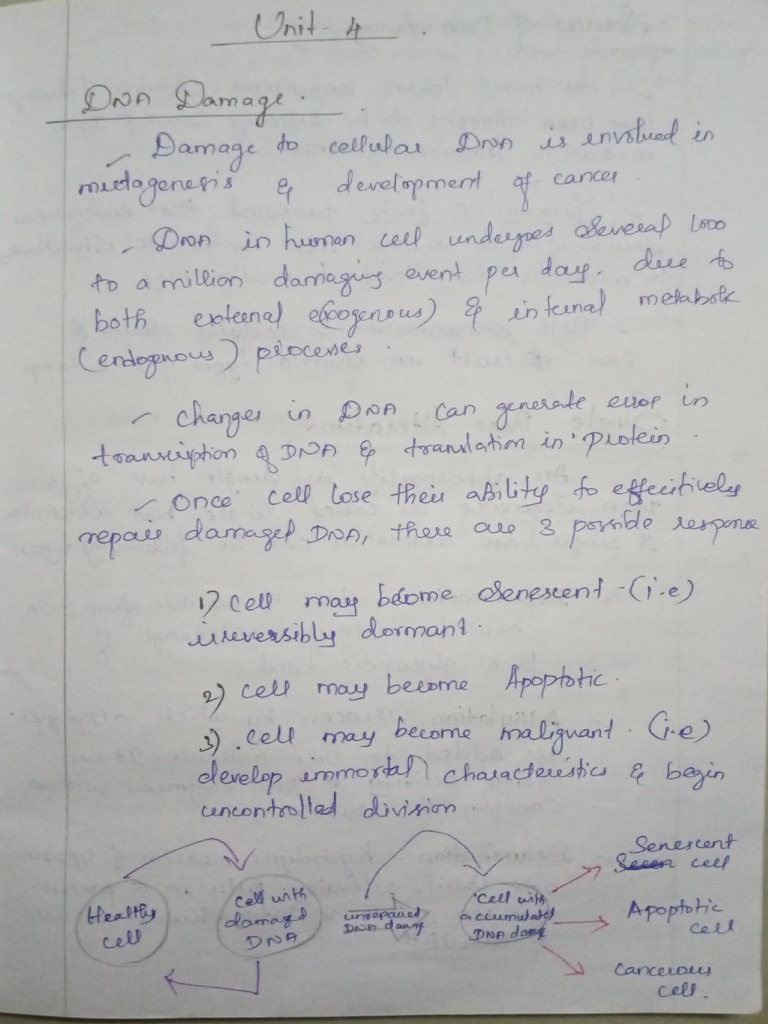 Unit - 4 .
DNA Damage .
- Damage to cellular DNA is involved in
mutagenesis & development of cancer .
- DNA in human cell undergoes several 1000
to a million damaging event per day. due to
both external e(xogenous) & internal metabolic
(endogenous) processes .
- changes in DNA can generate error in
transcription of DNA & translation in protein .
- Once cell lose their ability to effecitively
repair damaged DNA, there are 3 possible response
1) Cell may become Senescent - (i.e)
irreversibly dormant .
2) Cell may become Apoptotic .
3) . Cell may become malignant . (i.e)
develop immortal characteristics & begin
uncontrolled division .
Healthy
cell
Cell with
damaged
DNA
unrepaired
DNA damage
Cell with
accumulated
DNA damage
Senescent
cell
Apoptotic
cell
Cancerous
cell .